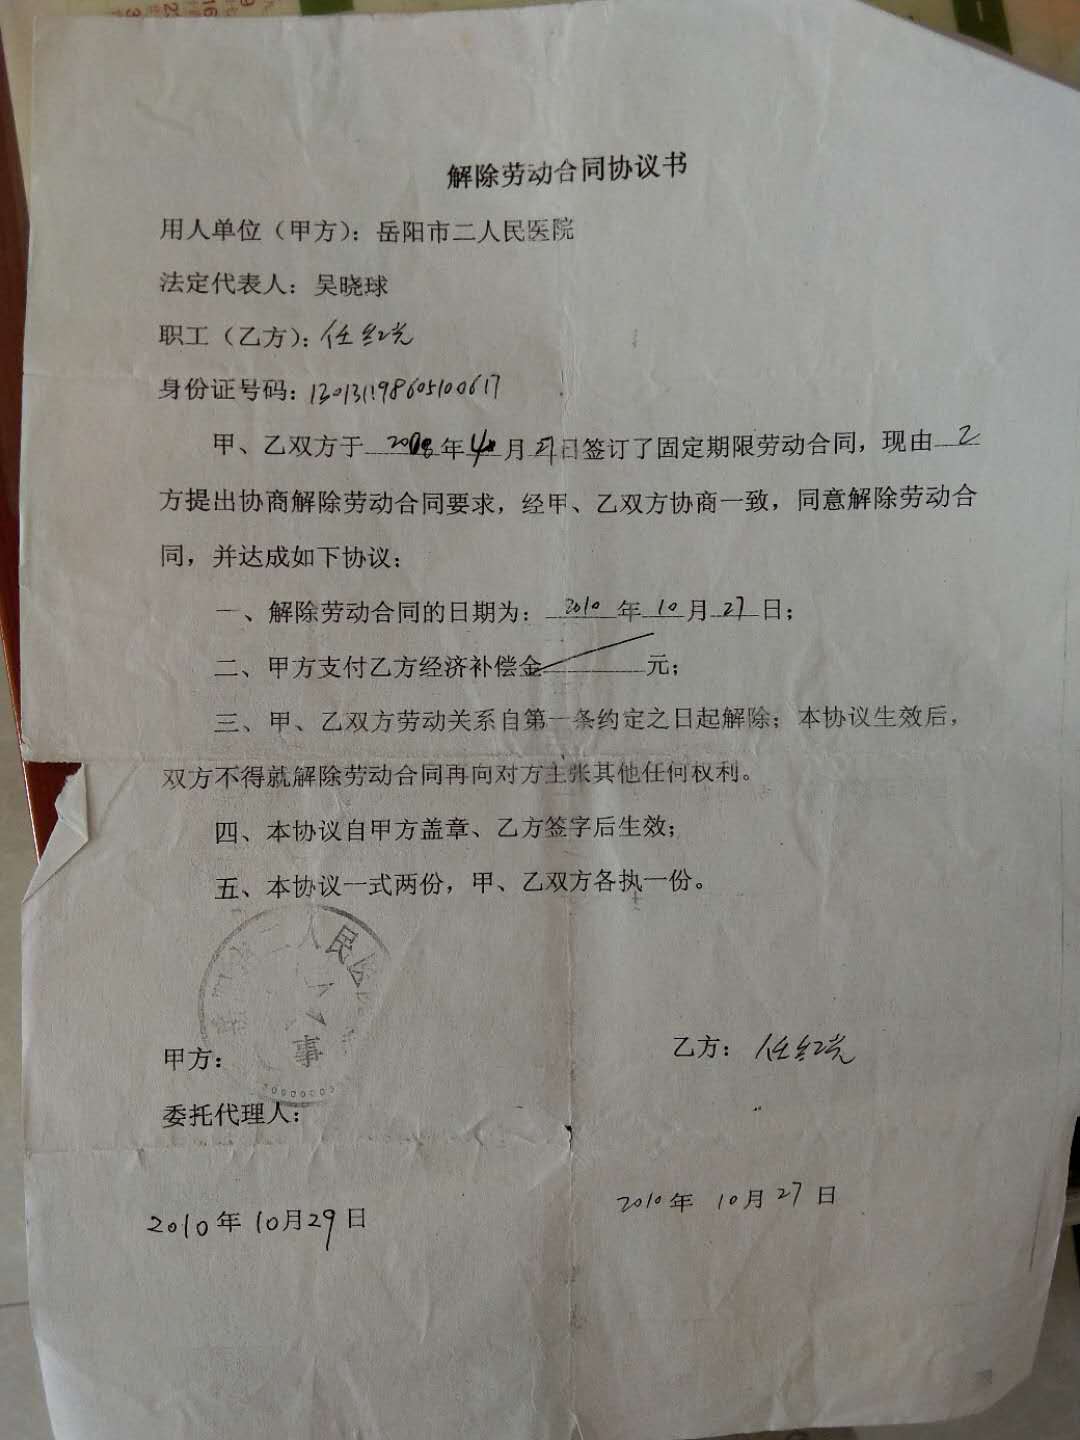 解除劳动合同协议书
用人单位（甲方）：岳阳市二人民医院
法定代表人：吴晓球
职工（乙方）：任红光
身份证号码：130131198605100617
甲、乙双方于2008年4月 日签订了固定期限劳动合同，现由乙
方提出协商解除劳动合同要求，经甲、乙双方协商一致，同意解除劳动合
同，并达成如下协议：
一、解除劳动合同的日期为：2010年10月27日；
二、甲方支付乙方经济补偿金 元；
三、甲、乙双方劳动关系自第一条约定之日起解除；本协议生效后，
双方不得就解除劳动合同再向对方主张其他任何权利。
四、本协议自甲方盖章、乙方签字后生效；
五、本协议一式两份，甲、乙双方各执一份。
二人民医
事
甲方：
乙方：任红光
委托代理人：
2010年10月29日
2010年10月27日